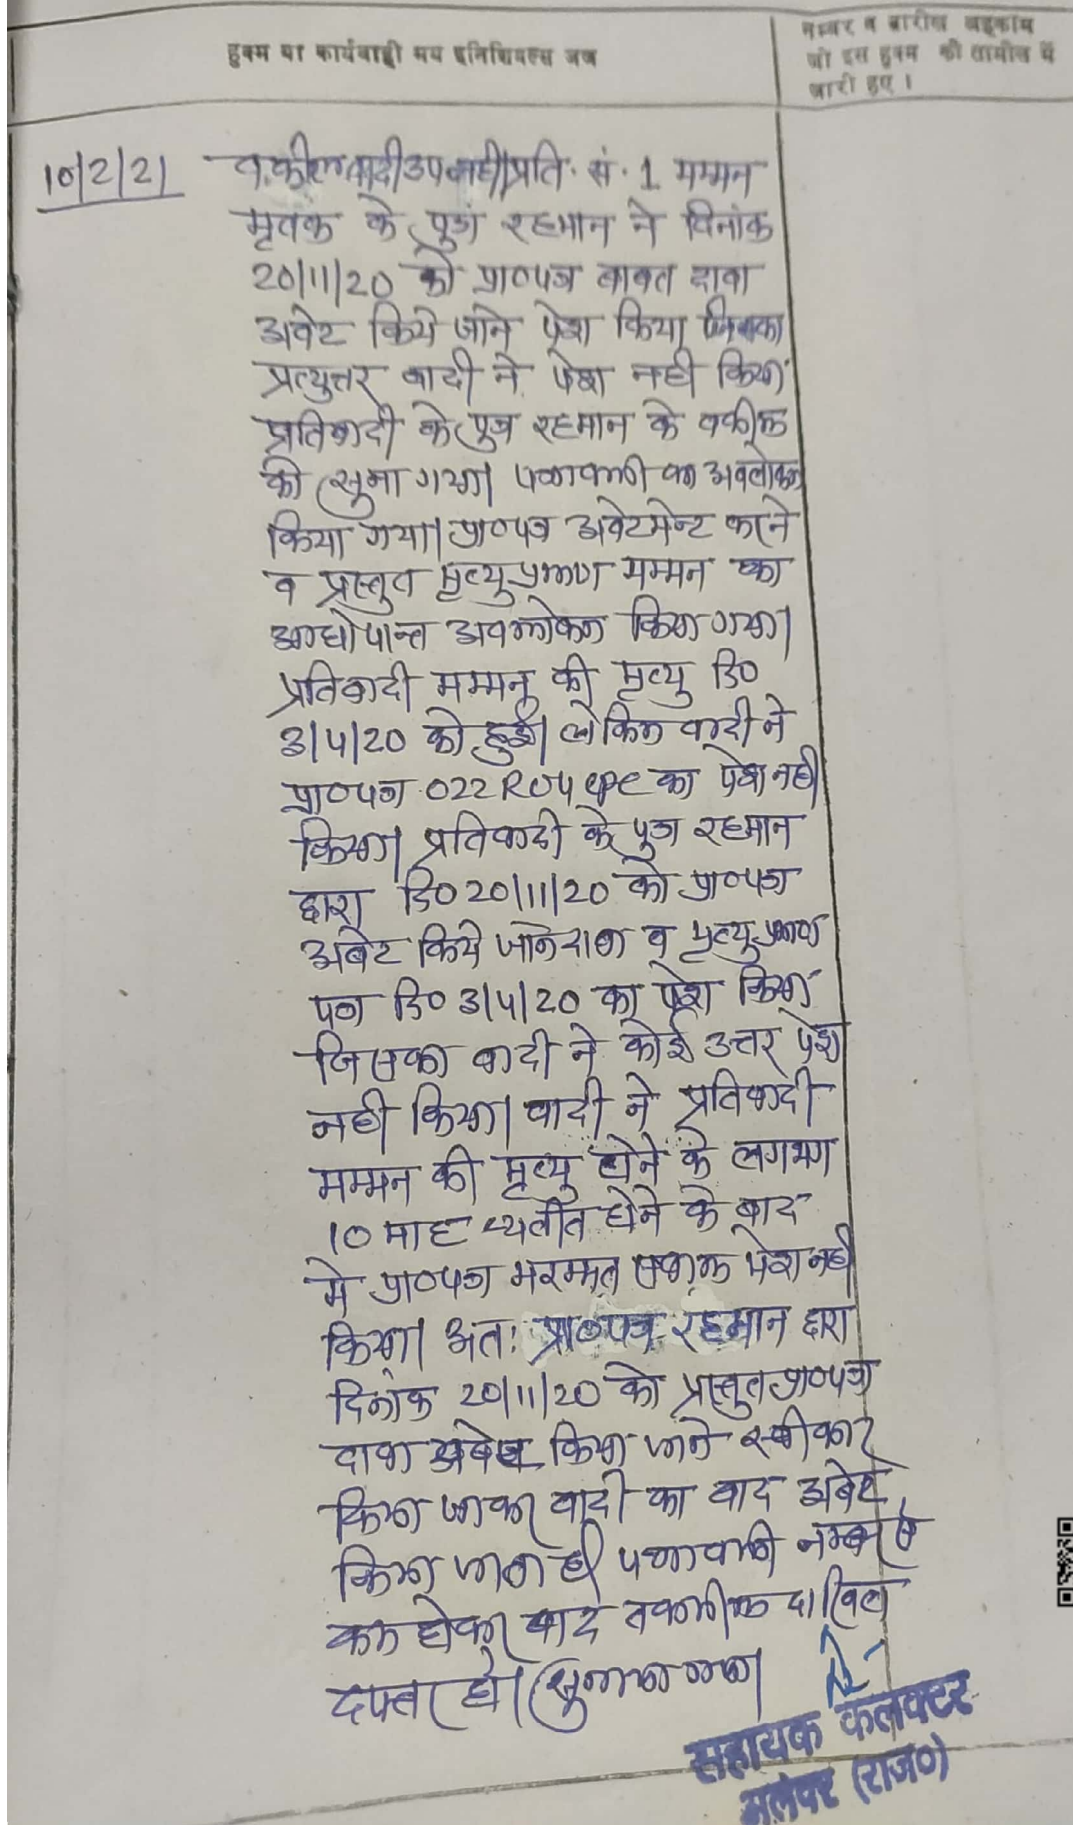 हुक्म या कार्यवाही मय इनिशियल्स जज
नम्बर व तारीख अहकाम
जो इस हुक्म की तामील में
जारी हुए ।
10/2/21
वकील वादी उप नही। प्रति. सं. 1 मम्मन
मृतक के पुत्र रहमान ने दिनांक
20/11/20 को प्रा०पत्र बाबत दावा
अबेट किये जाने पेश किया जिसका
प्रत्युत्तर वादी ने पेश नही किया
प्रतिवादी के पुत्र रहमान के वकील
को सुना गया। पत्रावली का अवलोकन
किया गया। प्रा०पत्र अबेटमेन्ट करने
व प्रस्तुत मृत्यु प्रमाण मम्मन का
आधोपान्त अवलोकन किया गया।
प्रतिवादी मम्मन की मृत्यु दि०
3/4/20 को हुई। लेकिन वादी ने
प्रा०पत्र 022 R04 cpc का पेश नही
किया। प्रतिवादी के पुत्र रहमान
द्वारा दि० 20/11/20 को प्रा०पत्र
अबेट किये जाने दावा व मृत्यु प्रमाण
पत्र दि० 3/4/20 का पेश किया
जिसका वादी ने कोई उत्तर पेश
नही किया। वादी ने प्रतिवादी
मम्मन की मृत्यु होने के लगभग
10 माह व्यतीत होने के बाद
मे प्रा०पत्र मरम्मत पेश नही
किया। अत: प्रा०पत्र रहमान द्वारा
दिनांक 20/11/20 को प्रस्तुत प्रा०पत्र
दावा अबेट किया जाने स्वीकार
किया जाकर वादी का वाद अबेट
किया जाता है। पत्रावली नम्बर से
कम होकर बाद तकमील दाखिल
दफ्तर हो। सुनाया गया।
सहायक कलक्टर
(राज०)